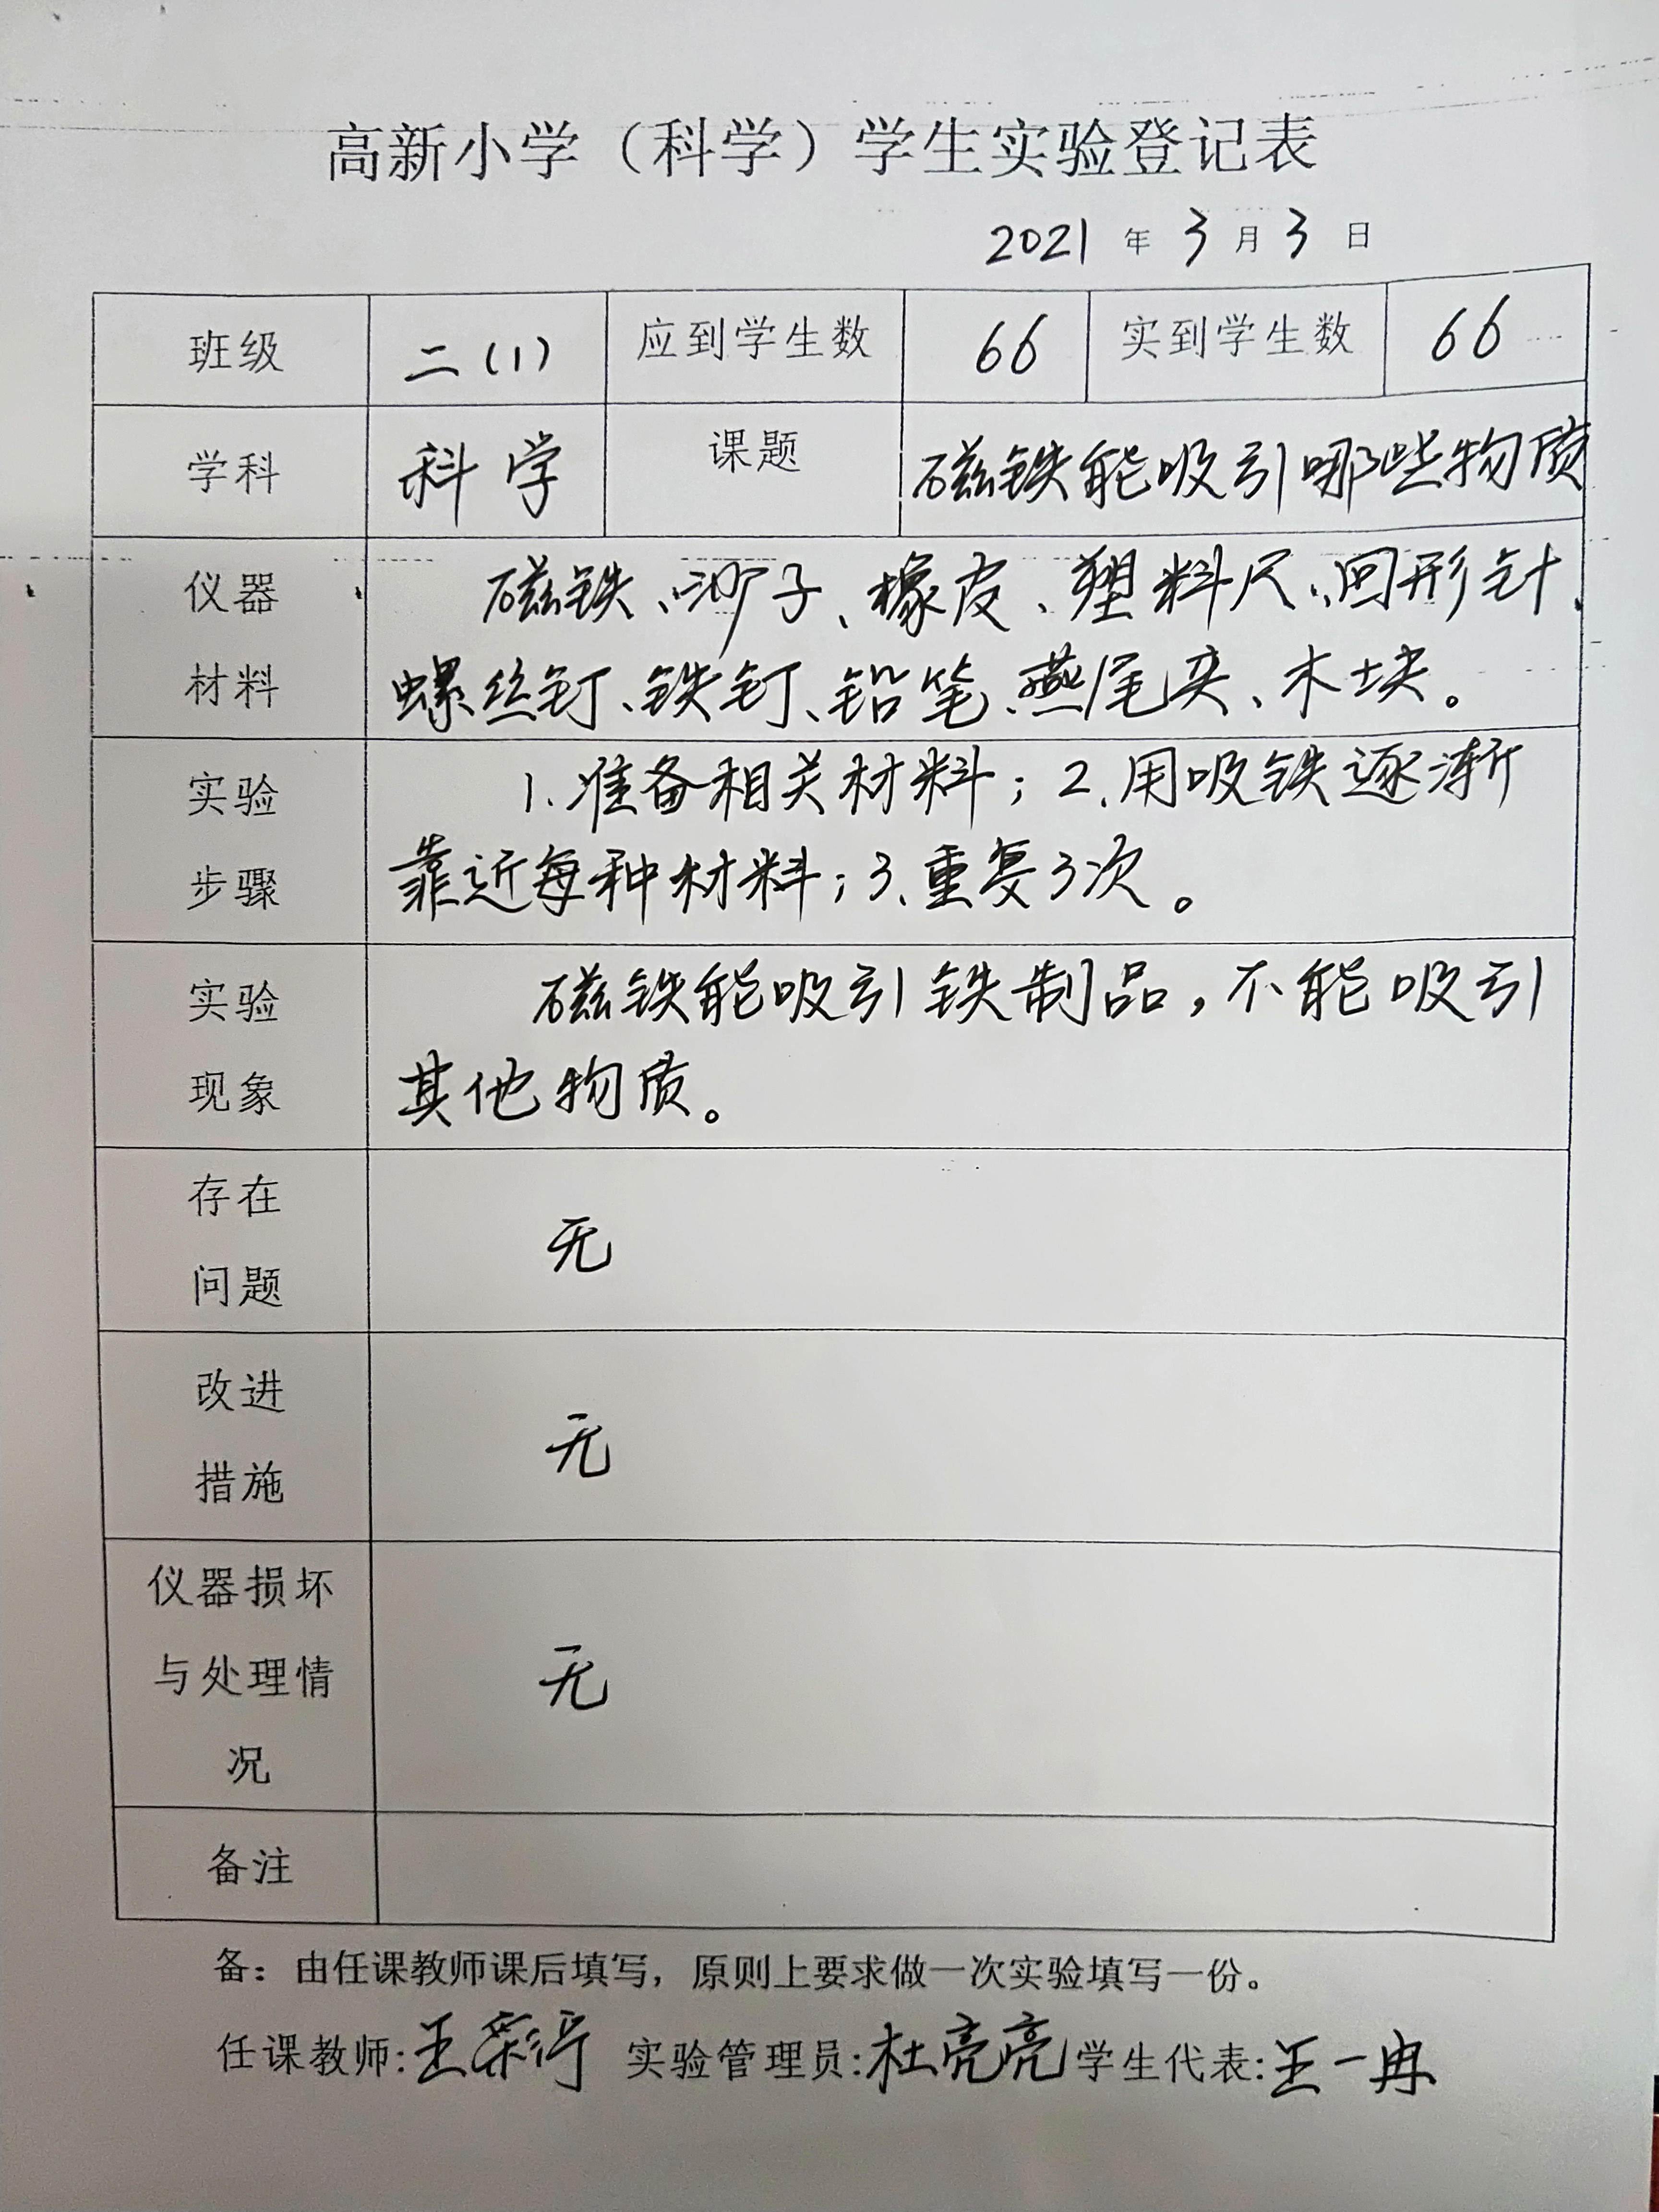 高新小学（科学）学生实验登记表
2021 年 3 月 3 日
班级 二(1) 应到学生数 66 实到学生数 66
学科 科学 课题 磁铁能吸引哪些物质
仪器 磁铁、沙子、橡皮、塑料尺、回形针、
材料 螺丝钉、铁钉、铅笔、燕尾夹、木块。
实验 1.准备相关材料；2.用吸铁逐渐
步骤 靠近每种材料；3.重复3次。
实验 磁铁能吸引铁制品，不能吸引
现象 其他物质。
存在
问题
无
改进
措施
无
仪器损坏
与处理情
况
无
备注
备：由任课教师课后填写，原则上要求做一次实验填写一份。
任课教师:王 实验管理员:杜亮亮 学生代表:王一冉